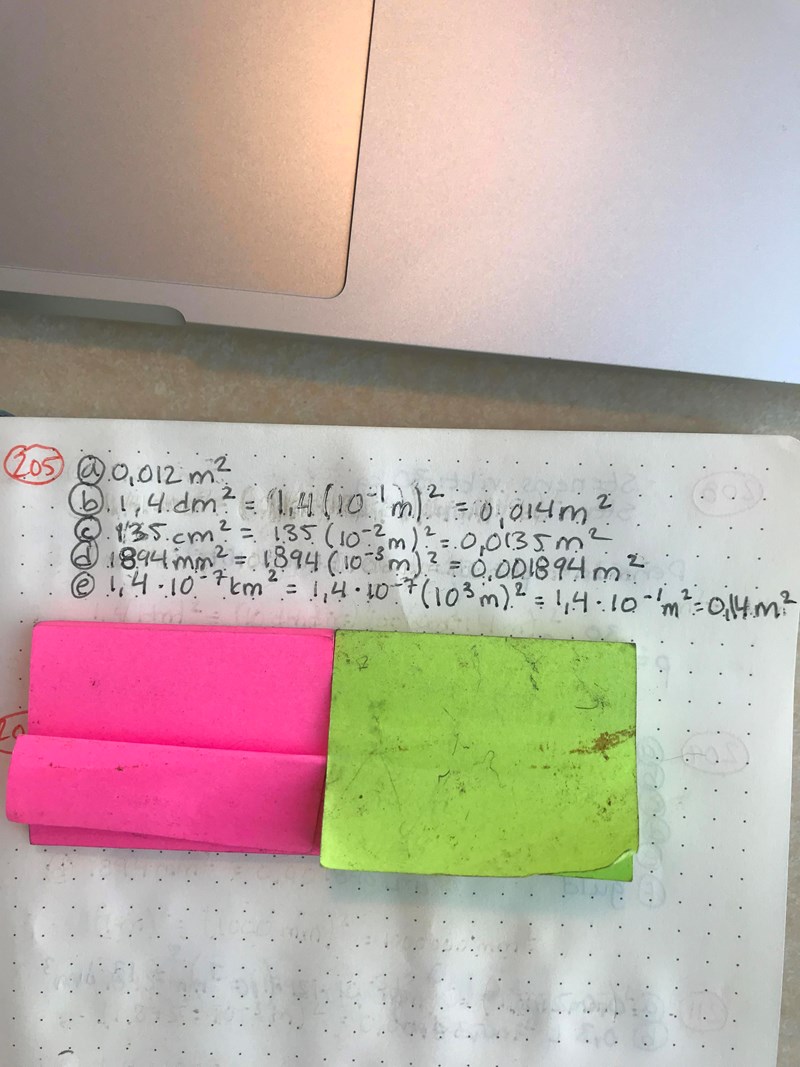 205 a 0,012 m²
b 1,4 dm² = 1,4 (10⁻¹ m)² = 0,014 m²
c 135 cm² = 135 (10⁻² m)² = 0,0135 m²
d 1894 mm² = 1894 (10⁻³ m)² = 0,001894 m²
e 1,4 · 10⁻⁷ km² = 1,4 · 10⁻⁷ (10³ m)² = 1,4 · 10⁻¹ m² = 0,14 m²